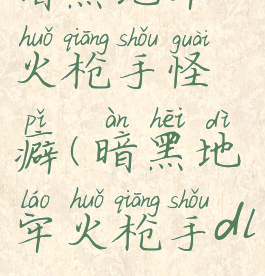 huǒ qiāng shǒu guài
火枪手怪
pǐ àn hēi dì
癖(暗黑地
láo huǒ qiāng shǒu
牢火枪手dl